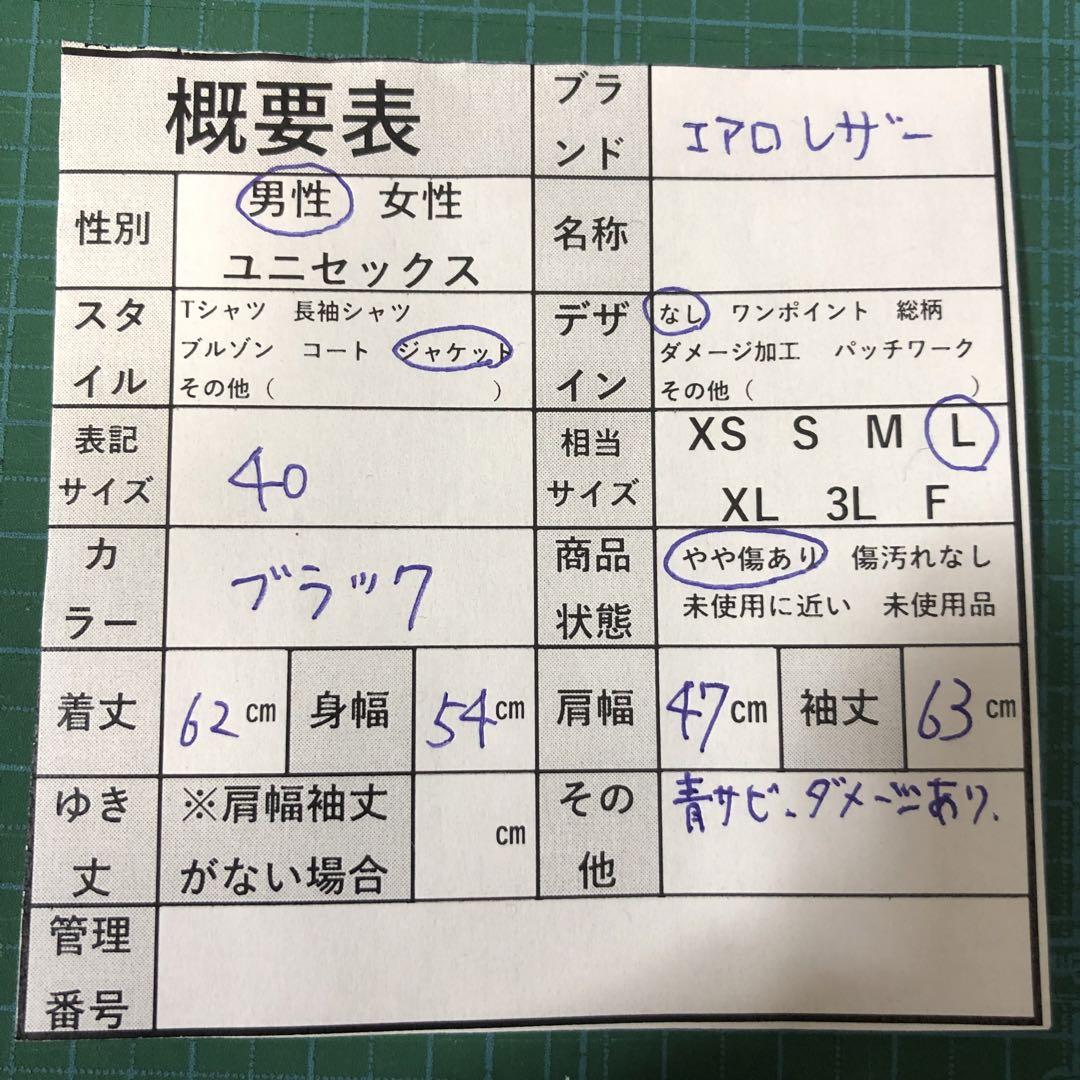 概要表
ブランド
エアロレザー
性別
男性 女性
ユニセックス
名称
スタイル
Tシャツ 長袖シャツ
ブルゾン コート ジャケット
その他( )
デザイン
なし ワンポイント 総柄
ダメージ加工 パッチワーク
その他( )
表記
サイズ
40
相当
サイズ
XS S M L
XL 3L F
カラー
ブラック
商品
状態
やや傷あり 傷汚れなし
未使用に近い 未使用品
着丈
62cm
身幅
54cm
肩幅
47cm
袖丈
63cm
ゆき
丈
※肩幅袖丈
がない場合
cm
その
他
青サビ、ダメージあり、
管理
番号